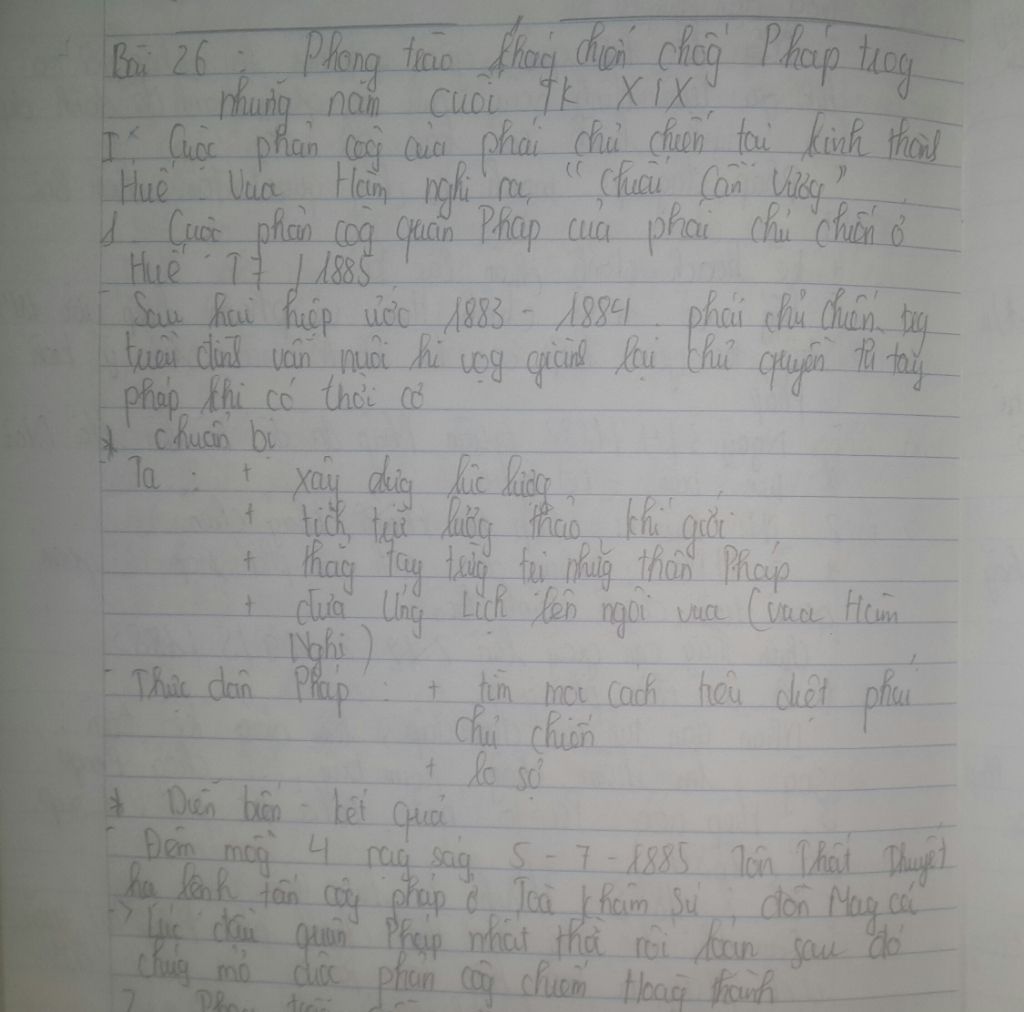 Bài 26 : Phong trào khág chiến chốg Pháp trog
nhữg năm cuối TK XIX
I Cuộc phản côg của phái chủ chiến tại kinh thành
Huế. Vua Hàm nghi ra "chiếu Cần Vươg"
1 Cuộc phản côg quân Pháp của phái chủ chiến ở
Huế T7 / 1885
- Sau hai hiệp ước 1883 - 1884 phái chủ chiến trg
triều đình vẫn nuôi hi vọg giành lại chủ quyền từ tay
pháp khi có thời cơ
* Chuẩn bị
- Ta : + xây dựg lực lượg
+ tích trữ lươg thảo, khí giới
+ thẳg tay trừg trị nhữg thân Pháp
+ đưa Ưng Lịch lên ngôi vua (vua Hàm
Nghi)
- Thực dân Pháp : + tìm mọi cách tiêu diệt phái
chủ chiến
+ lo sợ
* Diễn biến - kết quả
- Đêm mồg 4 rạg ság 5 - 7 - 1885 Tôn Thất Thuyết
hạ lệnh tấn côg pháp ở Toà Khâm Sứ, đồn Mag cá
-> Lúc đầu quân Pháp nhất thời rối loạn sau đó
chúg mở cuộc phản côg chiếm Hoàg thành
2. Phog trào